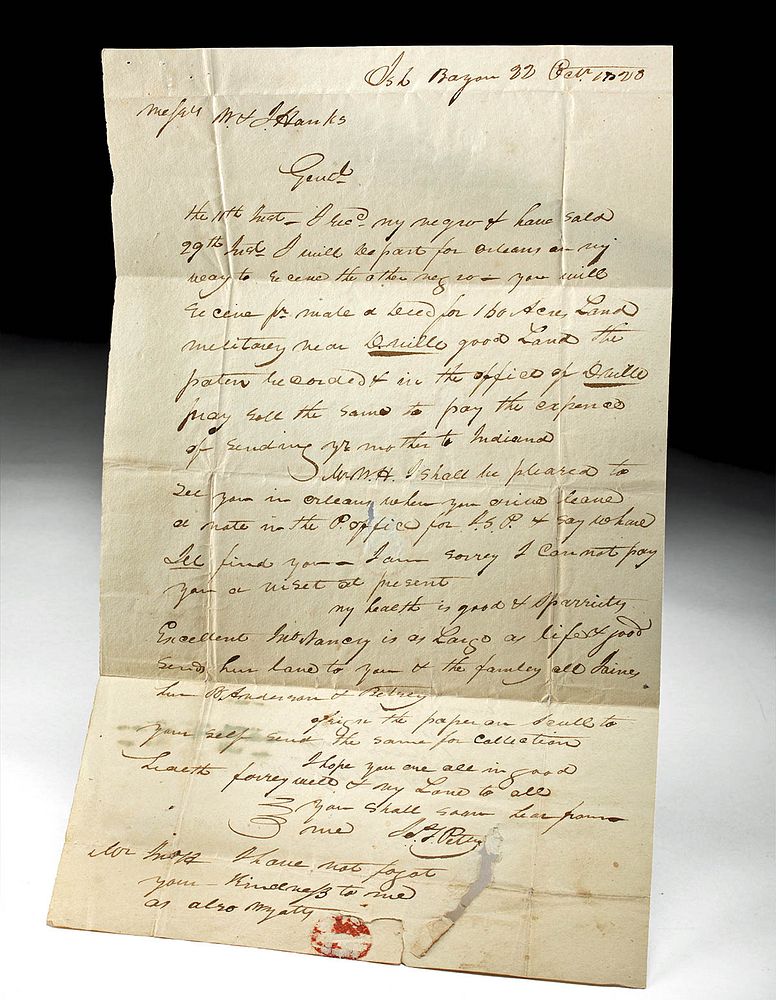 Bayou 22 1820
Messrs W. & J Hanks
Gent
the 11th Inst – I recd my negro & have sold
29th Inst I will depart for Orleans on my
way to receve the other negro – you will
receve pr male a Deed for 160 Acres Land
militarey near D.ville good Land the
paten recorded & in the office of D.ville
pray sell the same to pay the expence
of sending yr mother to Indiana
Mr W.H. I shall be pleased to
see you in orleans when you arive leave
a note in the P. office for & say whare
Ill find you – I am sorrey I can not pay
you a viset at present
my health is good &
Excellent Nancy is as Large as life & good
sends hur love to you & the famley all
hur Anderson & Betsey
the paper on to
your self send the same for collection
I hope you are all in good
health & my Love to all
you shall soon hear from
me
Mr I have not fogot
your – Kindness to me
as also Wyatt